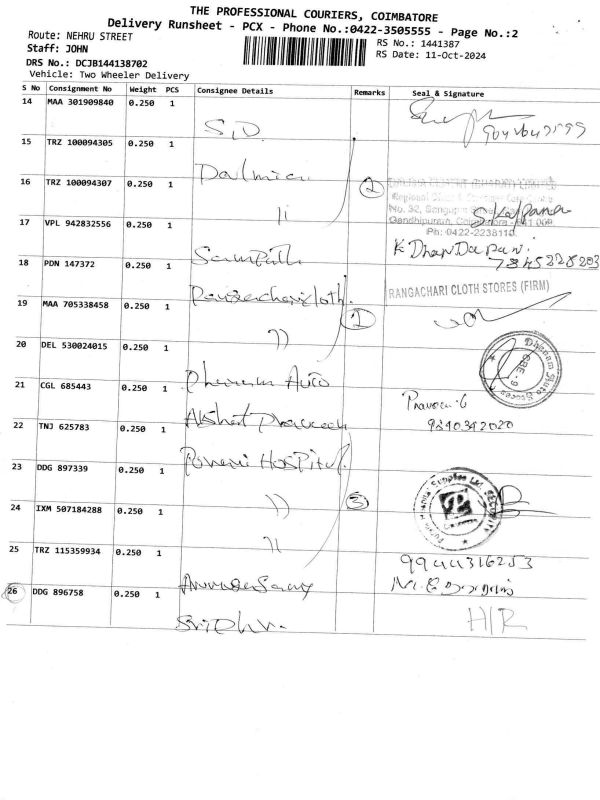 THE PROFESSIONAL COURIERS, COIMBATORE
Delivery Runsheet - PCX - Phone No.:0422-3505555 - Page No.:2
Route: NEHRU STREET
RS No.: 1441387
Staff: JOHN
RS Date: 11-Oct-2024
DRS No.: DCJB144138702
Vehicle: Two Wheeler Delivery
S No Consignment No Weight PCS Consignee Details Remarks Seal & Signature
14 MAA 301909840 0.250 1 S,D
15 TRZ 100094305 0.250 1 Dalmia
16 TRZ 100094307 0.250 1 11 2
Regional Office
No. 32,
Gandhipuram, Coimbatore - 641 009
Ph: 0422-2238110
S. Kalpana
17 VPL 942832556 0.250 1 Sampath K. Dhandapani
7845228203
18 PDN 147372 0.250 1 Rangachari cloth. RANGACHARI CLOTH STORES (FIRM)
19 MAA 705338458 0.250 1 )) 1
20 DEL 530024015 0.250 1 Dhanam Auto Dhanam Auto Stores CBE-9
21 CGL 685443 0.250 1 Akshat Praveen Praveen G
9840342020
22 TNJ 625783 0.250 1 Ponemi Hospital
23 DDG 897339 0.250 1 )) SECURITY
24 IXM 507184288 0.250 1 )) 3
25 TRZ 115359934 0.250 1 9944316253
26 DDG 896758 0.250 1 Sridhr. H/R